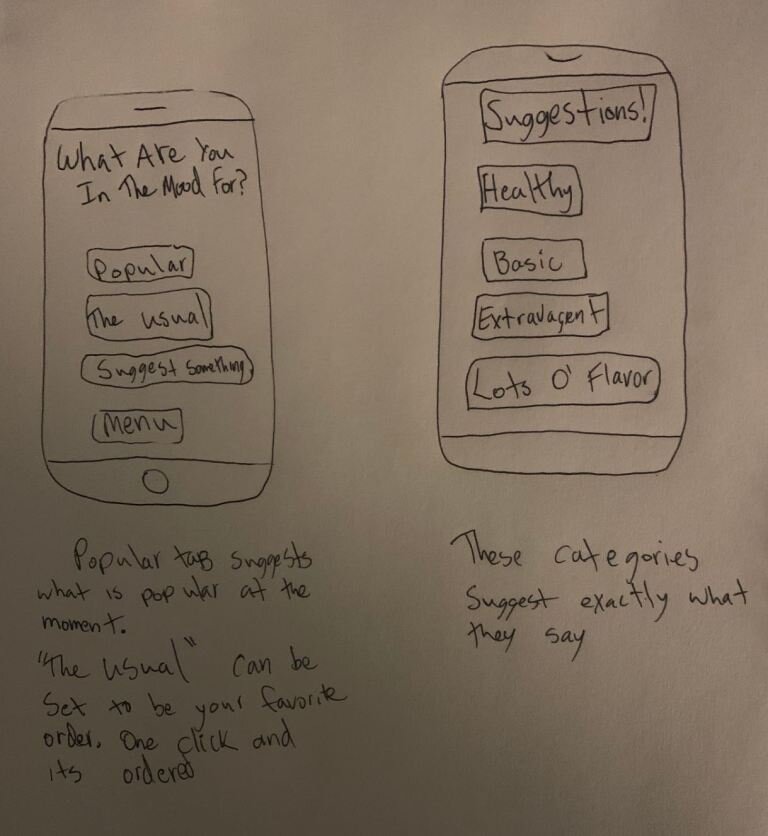 What Are You
In The Mood For?
Popular
The usual
Suggest Something
Menu
Popular tab suggests
what is popular at the
moment.
"The usual" can be
Set to be your favorite
order. One click and
its ordered
Suggestions!
Healthy
Basic
Extravagent
Lots O' Flavor
These categories
Suggest exactly what
they say